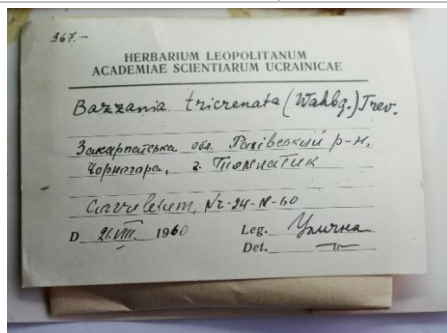 367.-
HERBARIUM LEOPOLITANUM
ACADEMIAE SCIENTIARUM UCRAINICAE
Bazzania tricrenata (Wahbg.) Trev.
Закарпатська обл. Рахівський р-н,
Чорногора, г.
Nr-24-N-60
D 21.VIII. 1960 Leg. Улична
Det. —"—